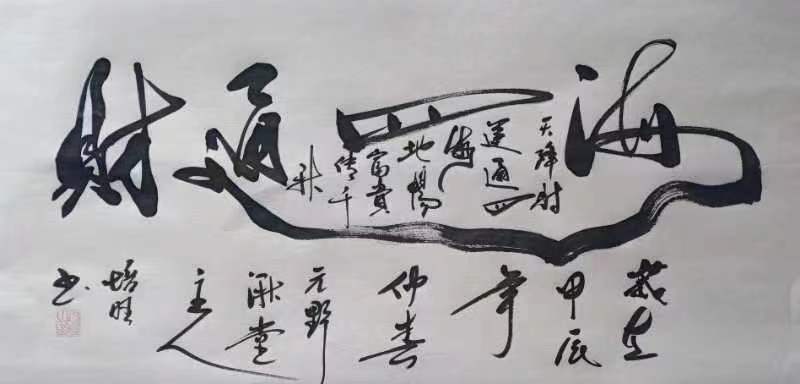 財通四海
天降財
運通四
海
地賜
富貴
傳千
秋
歲在
甲辰
年
仲春
元野
堂
主人
培旺
书